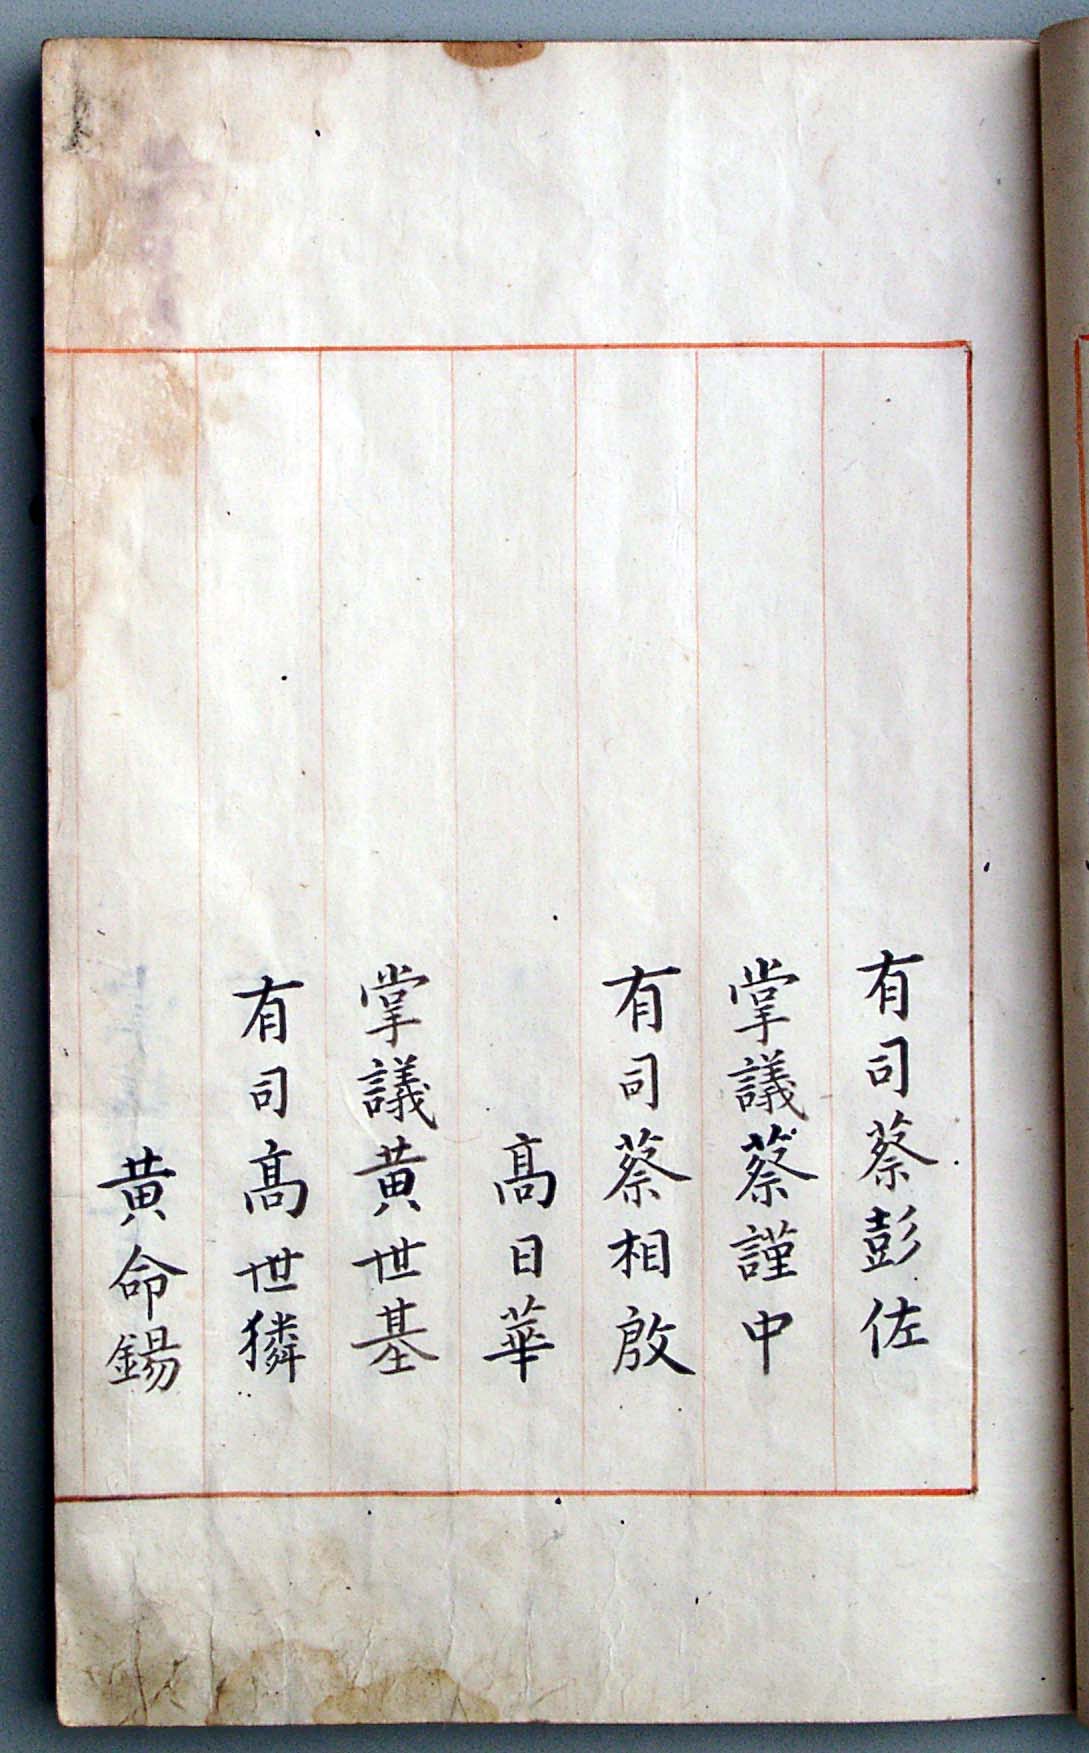 有司蔡彭佐
掌議蔡謹中
有司蔡相殷
高日華
掌議黃世基
有司高世獜
黃命錫